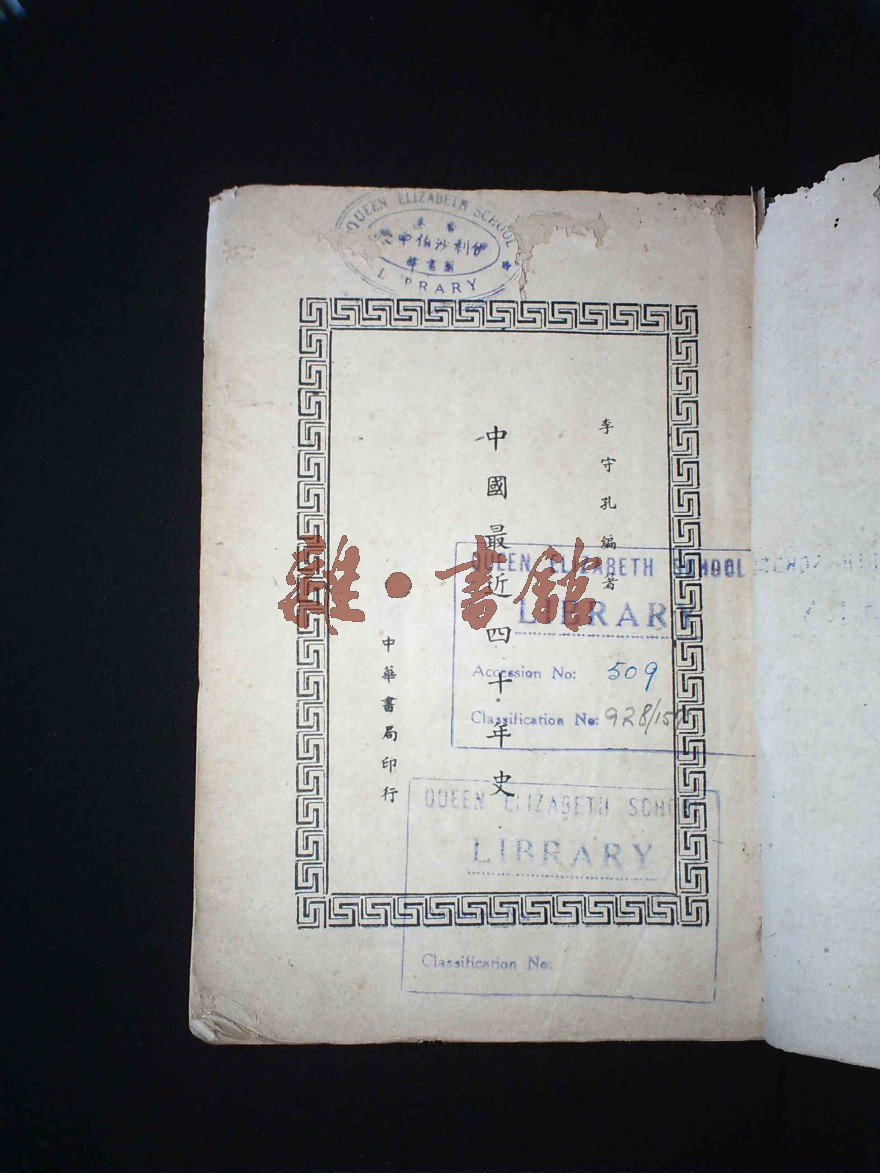 QUEEN ELIZABETH SCHOOL
伊利沙伯中
圖書館
LIBRARY
李守孔編著
中國最近四十年史
中華書局印行
雜·書館
QUEEN ELIZABETH SCHOOL
LIBRARY
Accession No: 509
Classification No: 928/
QUEEN ELIZABETH SCHOOL
LIBRARY
Classification No: